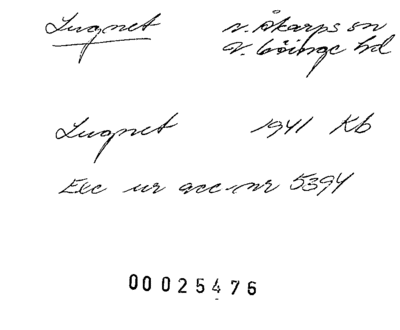 Lugnet
N. Åkarps sn
V. Göinge hd
Lugnet 1941 Kb
Exc ur acc.nr 5394
00025476